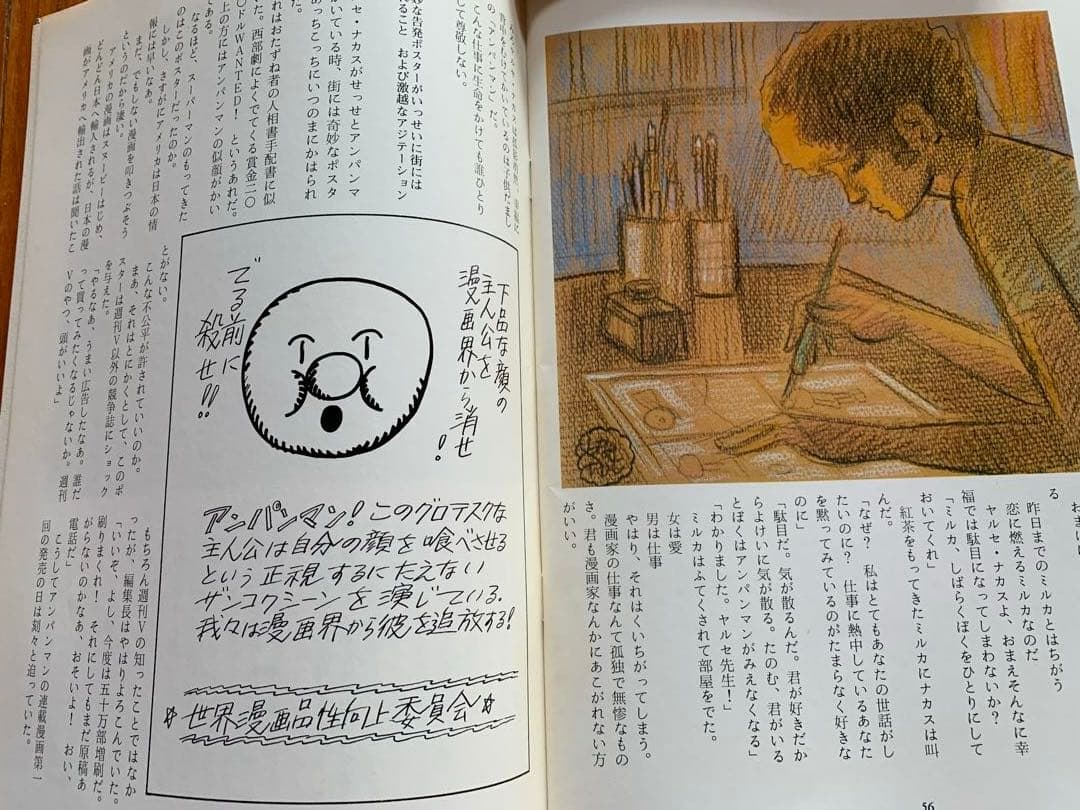 る
昨日までのミルカとはちがう
恋に燃えるミルカなのだ
ヤルセ・ナカスよ、おまえそんなに幸
福では駄目になってしまわないか？
「ミルカ、しばらくぼくをひとりにして
おいてくれ」
紅茶をもってきたミルカにナカスは叫
んだ。
「なぜ？　私はとてもあなたの世話がし
たいのに？　仕事に熱中しているあなた
を黙ってみているのがたまらなく好きな
のに」
「駄目だ。気が散るんだ。君が好きだか
らよけいに気が散る。たのむ、君がいる
とぼくはアンパンマンがみえなくなる」
「わかりました。ヤルセ先生！」
ミルカはふてくされて部屋をでた。
女は愛
男は仕事
やはり、それはくいちがってしまう。
漫画家の仕事なんて孤独で無惨なもの
さ。君も漫画家なんかにあこがれない方
がいい。
56
の「アンパンマン」だ。
てんな仕事に生命をかけても誰ひとり
して尊敬しない。
妙な告発ポスターがいっせいに街には
ること　および激越なアジテーション
セ・ナカスがせっせとアンパンマ
かいている時、街には奇妙なポスタ
あっちこっちにいつのまにかはられ
た。
れはおたずね者の人相書手配書に似
た。西部劇によくでてくる賞金二〇
〇ドルWANTED！　というあれだ。
上の方にはアンパンマンの似顔がかい
てある。
なるほど、スーパーマンのもってきた
のはこのポスターだったのか。
しかし、さすがにアメリカは日本の情
報には早いなあ。
まだ、でもしない漫画を叩きつぶそう
というのだから凄い。
アメリカの漫画はスヌーピーはじめ、
どんどん日本へ輸入されるが、日本の漫
画がアメリカへ輸出された話は聞いたこ
とがない。
こんな不公平が許されていいのか。
まあ、それはとにかくとして、このポ
スターは週刊V以外の競争誌にショック
を与えた。
「やるなあ、うまい広告したなあ。誰だ
って買ってみたくなるじゃないか。週刊
Vのやつ、頭がいいよ」
下品な顔の
主人公を
漫画界から消せ！
でる前に
殺せ!!
アンパンマン！このグロテスクな
主人公は自分の顔を喰べさせる
という正視するにたえない
ザンコクシーンを演じている.
我々は漫画界から彼を追放する!
☆世界漫画品性向上委員会☆
もちろん週刊Vの知ったことではなか
ったが、編集長はやはりよろこんでいた。
「いいぞ、よし、今度は五十万部増刷だ。
刷りまくれ！　それにしてもまだ原稿あ
がらないのかなあ、おそいよ！　おい、
電話だ」
こうしてアンパンマンの連載漫画第一
回の発売の日は刻々と迫っていた。